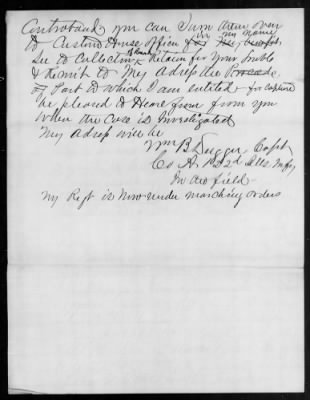 Contraband you can Turn them over
in my name
to Custom House Officer for my benefit
see to Collection & Retain for your trouble
& Remit to My Adress the Proceeds
or Part to which I am entitled for capture
be pleased to Hear from from you
When the Case is Investigated
My Adress will be
Wm B Dugger Capt
Co A 122d Ills Infy
In the field
My Regt is Now under marching orders